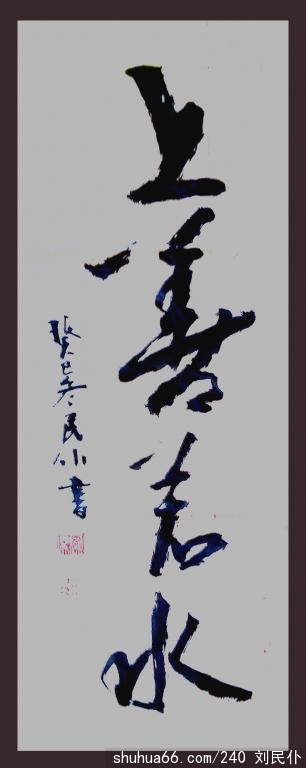 上善若水
癸巳冬民仆書
shuhua66.com/240 刘民仆